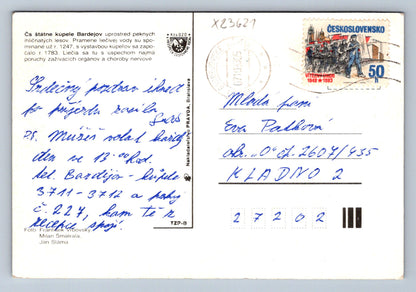 X23621
Čs štátne kúpele Bardejov uprostred pekných
ihličnatých lesov. Pramene liečivej vody sú spo-
mínané už r. 1247, s výstavbou kúpeľov sa zapo-
čalo r. 1783. Liečia sa tu s úspechom najmä
poruchy zažívacích orgánov a choroby nervové
Srdečný pozdrav ihned
po příjezdu zasílá
PS. Můžeš volat každý
den ve 13.00 hod.
tel. Bardějov - kúpele
3711-3712 a pokoj
č. 227, kam tě z
recepce spojí.
Foto: František Vrbovský,
Milan Šmatrala,
Ján Štáma
TZP-B
Nakladateľstvo PRAVDA, Bratislava
ČESKOSLOVENSKO
1948 1983
50
h
Mladá paní
Eva
2607/435
KLADNO 2
2 7 2 0 2